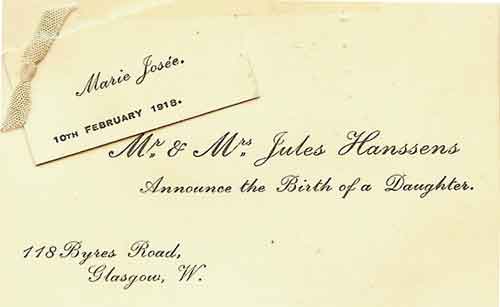 Marie Josée.
10TH FEBRUARY 1918.
Mr. & Mrs Jules Hanssens
Announce the Birth of a Daughter.
118 Byres Road,
Glasgow, W.